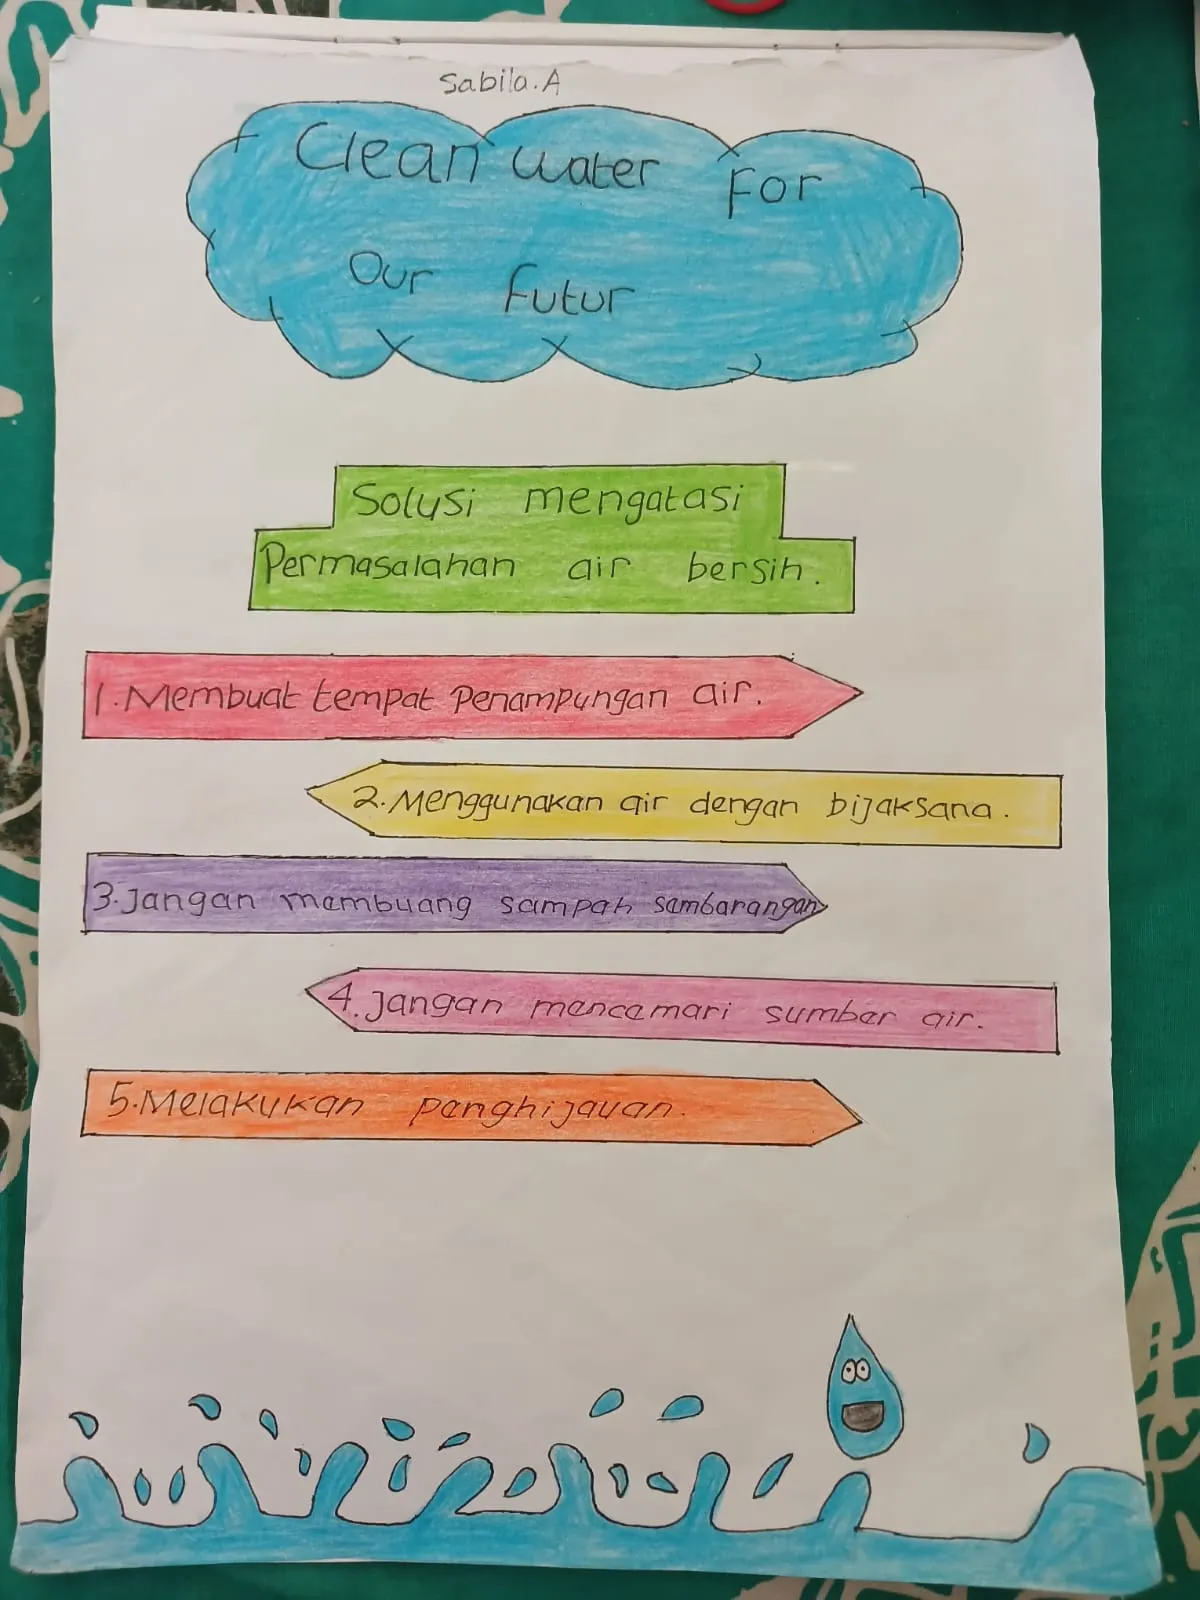 Sabila.A
Clean water For
Our Futur
Solusi mengatasi
Permasalahan air bersih.
1.Membuat tempat Penampungan air.
2.Menggunakan air dengan bijaksana.
3.Jangan membuang sampah sambarangan
4.Jangan mencemari sumber air.
5.Melakukan penghijauan.